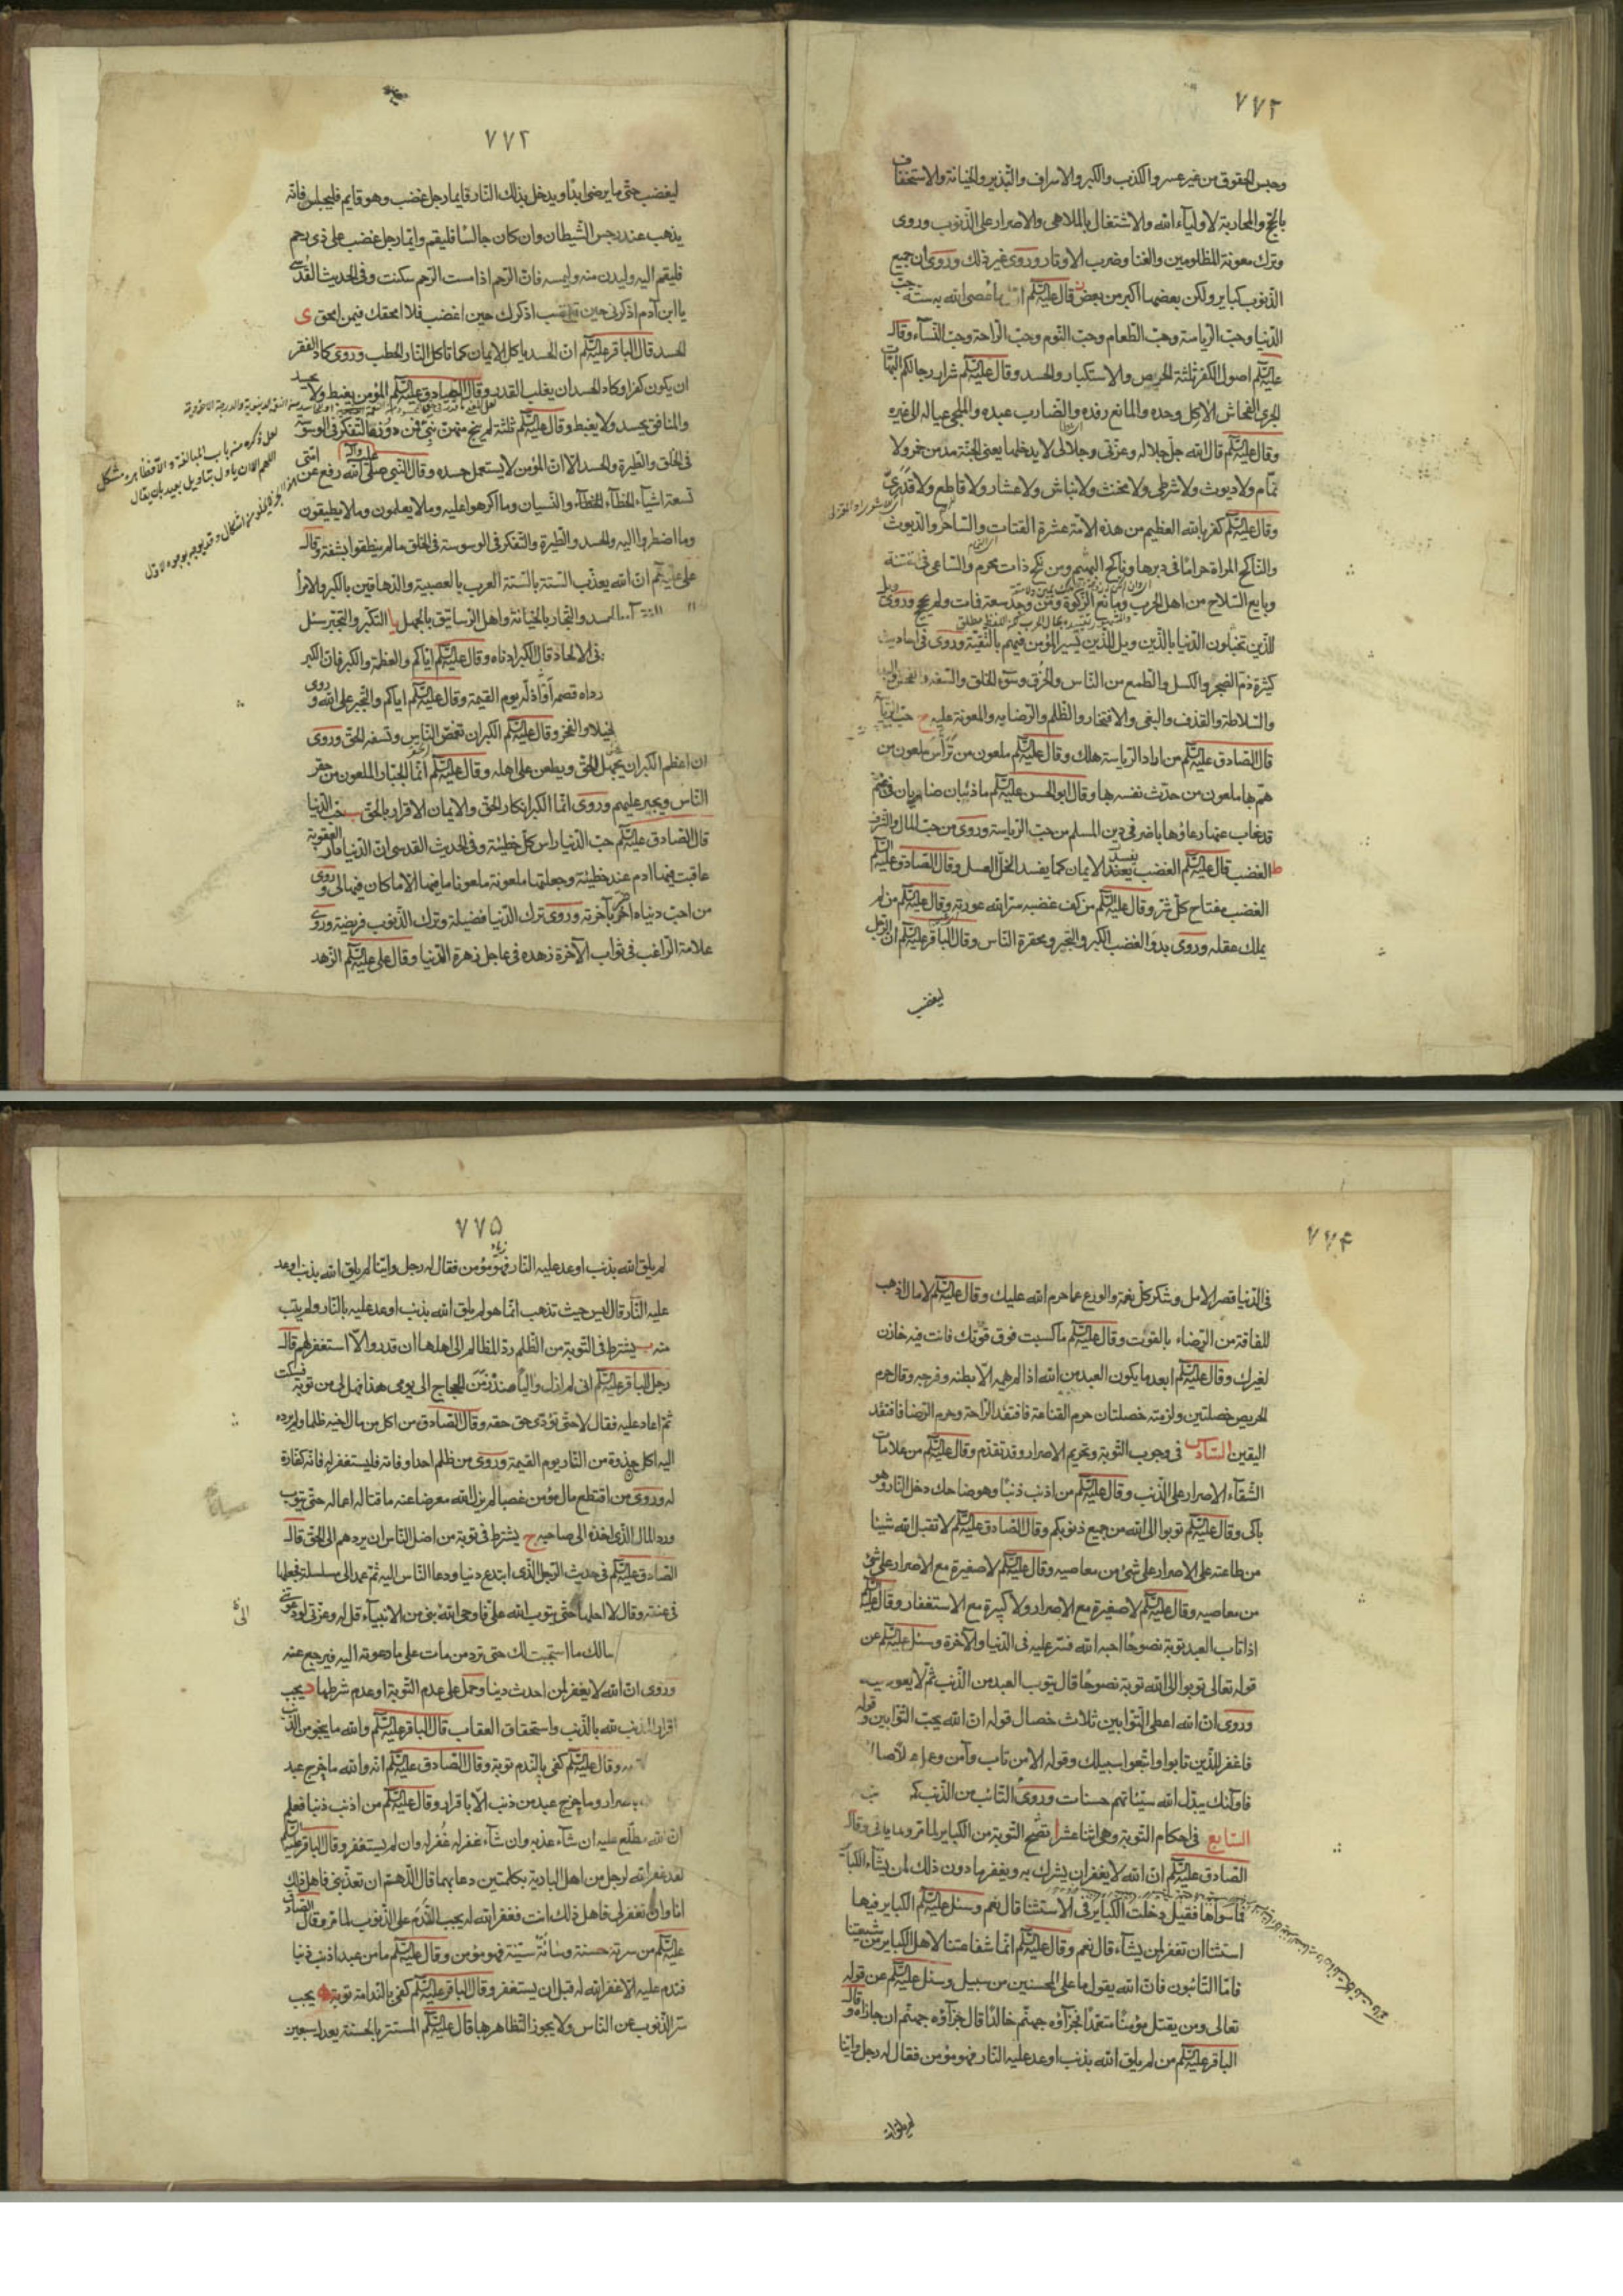 ٧٧٢
وحبس الحقوق من غير عسر والكذب والكبر والاسراف والتبذير والخيانة والاستخفاف
بالحج والمحاربة لاولياء الله والاشتغال بالملاهي والاصرار على الذنوب وروى
وترك معونة المظلومين والغنا وضرب الاوتار وروى غير ذلك وروى ان جميع
الذنوب كباير ولكن بعضها اكبر من بعض قال عليه السلم ما عصى الله به ستة حب
الدنيا وحب الرياسة وحب الطعام وحب النوم وحب الراحة وحب النساء وقال
عليه السلم اصول الكفر ثلثة الحرص والاستكبار والحسد وقال عليه السلم شرار رجالكم البهات
الجرى الفحاش الآكل وحده والمانع رفده والضارب عبده والملجى عياله الى غيره
وقال عليه السلم قال الله جل جلاله وعزتى وجلالى لا يدخلها يعنى الجنة مدمن خمر ولا
نمام ولا ديوث ولا شرطى ولا مخنث ولا نباش ولا عشار ولا قاطع ولا قدرى
وقال عليه السلم كفر بالله العظيم من هذه الامة عشرة القتات والساحر والديوث
والناكح المراة حراما فى دبرها وناكح البهيمة ومن نكح ذات محرم والساعى فى فتنة
وبايع السلاح من اهل الحرب ومانع الزكوة ومن وجد سعة فمات ولم يحج وروى ويل
للذين يختلون الدنيا بالدين ويل للذين يسير المؤمن فيهم بالتقية وروى فى احاديث
كثيرة ذم الضجر والكسل والطمع من الناس والخرق وسوء الخلق والسفه والفحش
والسلاطة والقذف والبغى والافتخار والظلم والرضا به والمعونة عليه ح حب الرياسة
قال الصادق عليه السلم من اراد الرياسة هلك وقال عليه السلم ملعون من ترأس ملعون من
هم بها ملعون من حدث نفسه بها وقال ابو الحسن عليه السلم ما ذئبان ضاريان فى غنم
قد غاب عنها رعاؤها باضر فى دين المسلم من حب الرياسة وروى من حب المال والشرف
ط الغضب قال عليه السلم الغضب يفسد الايمان كما يفسد الخل العسل وقال الصادق عليه السلم
الغضب مفتاح كل شر وقال عليه السلم من كف غضبه ستر الله عورته وقال عليه السلم من لم
يملك عقله وروى بدو الغضب الكبر والتجبر ومحقرة الناس وقال الباقر عليه السلم ان الرجل
ليغضب
٧٧٢
ليغضب حتى ما يرضى ابدا ويدخل بذلك النار فايما رجل غضب وهو قايم فليجلس فانه
يذهب عنه رجس الشيطان وان كان جالسا فليقم وايما رجل غضب على ذى رحم
فليقم اليه وليدن منه وليمسه فان الرحم اذا مست الرحم سكنت وفى الحديث القدسى
يا ابن آدم اذكرنى حين تغضب اذكرك حين اغضب فلا امحقك فيمن امحق ى
الحسد قال الباقر عليه السلم ان الحسد ياكل الايمان كما تاكل النار الحطب وروى كاد الفقر
ان يكون كفرا وكاد الحسد ان يغلب القدر وقال الصادق عليه السلم المؤمن يغبط ولا يحسد
والمنافق يحسد ولا يغبط وقال عليه السلم ثلثة لم ينج منهن نبى فمن دونه التفكر فى الوسوسة
فى الخلق والطيرة والحسد الا ان المؤمن لا يستعمل حسده وقال النبى صلى الله عليه وآله رفع عن امتى
تسعة اشياء الخطاء والنسيان وما اكرهوا عليه وما لا يعلمون وما لا يطيقون
وما اضطروا اليه والحسد والطيرة والتفكر فى الوسوسة فى الخلق ما لم ينطقوا بشفة وقال
على عليه السلم ان الله يعذب الستة بالستة العرب بالعصبية والدهاقين بالكبر والامرا
بالحسد والتجار بالخيانة واهل الرساتيق بالجهل يا التكبر والتجبر سئل
فى الالحاد قال الكبر ادناه وقال عليه السلم اياكم والعظمة والكبر فان الكبر
رداه قصمه واذله يوم القيمة وقال عليه السلم اياكم والتجبر على الله وروى
الخيلا والفخر وقال عليه السلم الكبر ان تغمض الناس وتسفه الحق وروى
ان اعظم الكبر ان يجهل الحق ويطعن على اهله وقال عليه السلم انما الجبار الملعون من حقر
الناس ويجبر عليهم وروى انما الكبر انكار الحق والايمان الاقرار بالحق يب حب الدنيا
قال الصادق عليه السلم حب الدنيا راس كل خطيئة وفى الحديث القدسى ان الدنيا دار العقوبة
عاقبت فيها ادم عند خطيئته وجعلتها ملعونة ملعونا ما فيها الا ما كان فيها لى وروى
من احب دنياه اضر بآخرته وروى ترك الدنيا فضيلة وترك الذنوب فريضة وروى
علامة الراغب فى ثواب الآخرة زهده فى عاجل زهرة الدنيا وقال على عليه السلم الزهد
٧٧۴
فى الدنيا قصر الامل وشكر كل نعمة والورع عما حرم الله عليك وقال عليه السلم لا مال اذهب
للفاقة من الرضاء بالقوت وقال عليه السلم ما كسبت فوق قوتك فانت فيه خازن
لغيرك وقال عليه السلم ابعد ما يكون العبد من الله اذا لم يهمه الا بطنه وفرجه وقال حرم
الحريص خصلتين ولزمته خصلتان حرم القناعة فافتقد الراحة وحرم الرضا فافتقد
اليقين السادس فى وجوب التوبة وتحريم الاصرار وقد تقدم وقال عليه السلم من علامات
الشقاء الاصرار على الذنب وقال عليه السلم من اذنب ذنبا وهو ضاحك دخل النار وهو
باكى وقال عليه السلم توبوا الى الله من جميع ذنوبكم وقال الصادق عليه السلم لا تقبل الله شيئا
من طاعته على الاصرار على شئ من معاصيه وقال عليه السلم لا صغيرة مع الاصرار على شئ
من معاصيه وقال عليه السلم لا صغيرة مع الاصرار ولا كبيرة مع الاستغفار وقال عليه السلم
اذا تاب العبد توبة نصوحا احبه الله فستر عليه فى الدنيا والآخرة وسئل عليه السلم عن
قوله تعالى توبوا الى الله توبة نصوحا قال يتوب العبد من الذنب ثم لا يعود فيه
وروى ان الله اعطى التوابين ثلاث خصال قوله ان الله يحب التوابين وقوله
فاغفر للذين تابوا واتبعوا سبيلك وقوله الا من تاب وآمن وعمل صالحا
فاولئك يبدل الله سيئاتهم حسنات وروى التائب من الذنب كمن
السابع فى احكام التوبة وهى اثنا عشر ا تصح التوبة من الكباير لما مر وما ياتى وقال
الصادق عليه السلم ان الله لا يغفر ان يشرك به ويغفر ما دون ذلك لمن يشاء الكباير
فما سواها فقيل دخلت الكباير فى الاستثنا قال نعم وسئل عليه السلم الكباير فيها
استثنا ان تغفر لمن يشاء قال نعم وقال عليه السلم انما شفاعتنا لاهل الكباير من شيعتنا
فاما التائبون فان الله يقول ما على المحسنين من سبيل وسئل عليه السلم عن قوله
تعالى ومن يقتل مؤمنا متعمدا فجزآؤه جهنم خالدا قال جزآؤه جهنم ان جازاه وقال
الباقر عليه السلم من لم يلق الله بذنب اوعد عليه النار فهو مؤمن فقال له رجل واينا
لم يلق الله
٧٧۵
لم يلق الله بذنب اوعد عليه النار فهو مؤمن فقال له رجل واينا لم يلق الله بذنب اوعد
عليه النار قال ليس حيث تذهب انما هو لم يلق الله بذنب اوعد عليه بالنار ولم يتب
منه ب يشترط فى التوبة من الظلم رد المظالم الى اهلها ان قدر والا استغفر لهم قال
رجل للباقر عليه السلم انى لم ازل واليا منذ زمن الحجاج الى يومى هذا فهل لى من توبة فسكت
ثم اعاد عليه فقال لا حتى تؤدى حق حقه وقال الصادق من اكل من مال اخيه ظلما ولم يرده
اليه اكل جذوة من النار يوم القيمة وروى من ظلم احدا وفاته فليستغفر له فانه كفارة
له وروى من اقتطع مال مؤمن غصبا لم يزل الله معرضا عنه ماقتا له اعماله حتى يتوب
ورد المال الذى اخذه الى صاحبه ج يشترط فى توبة من اضل الناس ان يردهم الى الحق قال
الصادق عليه السلم فى حديث الرجل الذى ابتدع دينا ودعا الناس اليه ثم عمد الى سلسلة فجعلها
فى عنقه وقال لا احلها حتى يتوب الله على فاوحى الله الى نبى من الانبياء قل له وعزتى لو دعوتنى
مالك ما استجبت لك حتى ترد من مات على ما دعوته اليه فيرجع عنه
وروى ان الله لا يغفر لمن احدث دينا وحمل على عدم التوبة او عدم شرطها د يجب
اقرار المذنب لله بالذنب واستحقاق العقاب قال الباقر عليه السلم والله ما ينجو من الذنب
وقال عليه السلم كفى بالندم توبة وقال الصادق عليه السلم انه والله ما خرج عبد
باصرار وما خرج عبد من ذنب الا باقرار وقال عليه السلم من اذنب ذنبا فعلم
ان الله مطلع عليه ان شاء عذبه وان شاء غفر له غفر له وان لم يستغفر وقال الباقر عليه السلم
لقد غفر الله لرجل من اهل البادية بكلمتين دعا بهما قال اللهم ان تعذبنى فاهل ذلك
انا وان تغفر لى فاهل ذلك انت فغفر الله له ه يجب الندم على الذنوب لما مر وقال الصادق
عليه السلم من سرته حسنة وسائته سيئة فهو مؤمن وقال عليه السلم ما من عبد اذنب ذنبا
فندم عليه الا غفر الله له قبل ان يستغفر وقال الباقر عليه السلم كفى بالندامة توبة و يجب
ستر الذنوب عن الناس ولا يجوز التظاهر بها قال عليه السلم المستتر بالحسنة يعدل سبعين